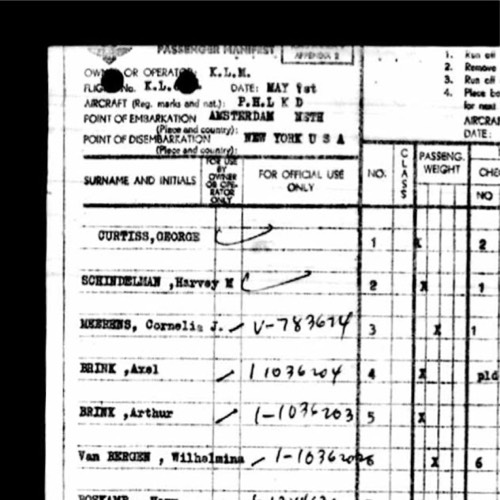 PASSENGER MANIFEST
APPENDIX 2
OWNER OR OPERATOR: K.L.M.
FLIGHT No. K.L. DATE: MAY 1st
AIRCRAFT (Reg. marks and nat.): P.H.L K D
POINT OF EMBARKATION AMSTERDAM NETH
(Place and country):
POINT OF DISEMBARKATION NEW YORK U S A
(Place and country):
1. Run off
2. Remove
3. Run off
4. Place bo
for next
AIRCRAF
DATE:
SURNAME AND INITIALS FOR USE BY OWNER OR OPE- RATOR ONLY FOR OFFICIAL USE ONLY NO. CLASS PASSENG. WEIGHT CHE NO
CURTISS,GEORGE 1 X 2
SCHINDELMAN ,Harvey M 2 X 1
MEERENS, Cornelia J. V-783674 3 X 1
BRINK ,Axel 1 1036204 4 X pld
BRINK ,Arthur 1-1036203 5 X
Van BERGEN , Wilhelmina 1-1036 6 X 6